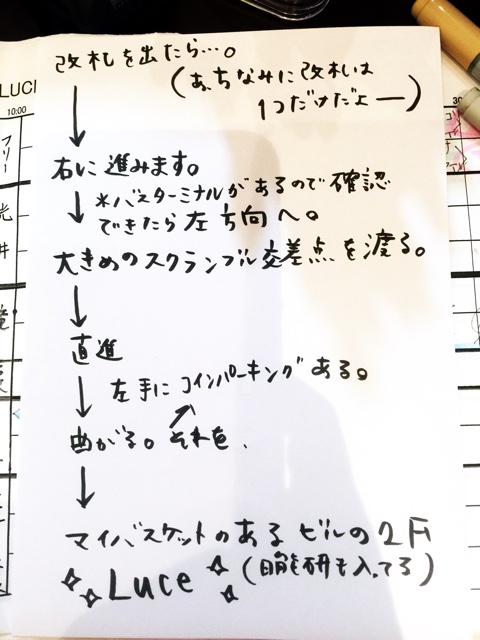 改札を出たら…。
(あ、ちなみに改札は
1つだけだよー)
右に進みます。
*バスターミナルがあるので確認
できたら左方向へ。
大きめのスクランブル交差点を渡る。
直進
左手にコインパーキングある。
曲がる。それを、
マイバスケットのあるビルの2F
Luce (日能研も入ってる)
LUCE
10:00
フリー
光
井
30